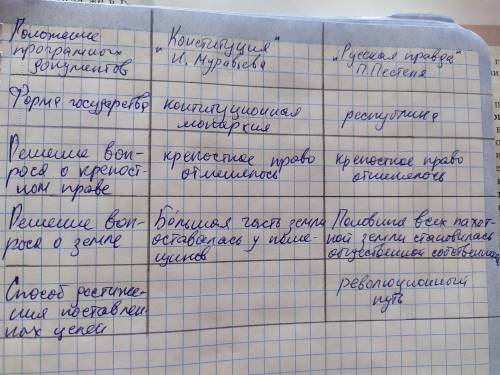 Положение
програмных
документов
"Конституция"
Н. Муравьёва
"Русская правда"
П. Пестеля
Форма государства
конституционная
монархия
республика
Решение воп-
роса о крепост-
ном праве
крепостное право
отменялось
крепостное право
отменялось
Решение воп-
роса о земле
Бо́льшая часть земли
оставалась у поме-
щиков
Половина всех пахот-
ной земли становилась
общественной собственнос
Способ достиже-
ния поставлен-
ных целей
революционный
путь